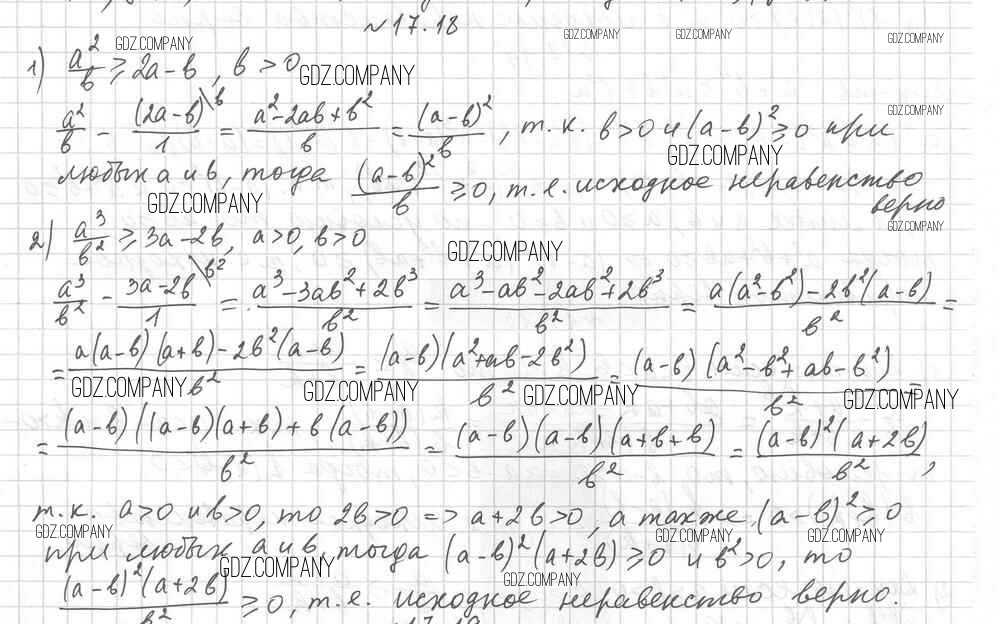 №17.18
GDZ.COMPANY GDZ.COMPANY GDZ.COMPANY GDZ.COMPANY
1) a²/в ≥ 2a-в, в > 0 GDZ.COMPANY
GDZ.COMPANY
a²/в - (2a-в)\в/1 = a²-2aв+в²/в = (a-в)²/в, т.к. в>0 и (a-в)²≥0 при
GDZ.COMPANY
любых a и в, тогда (a-в)²/в ≥0, т.е. исходное неравенство
GDZ.COMPANY верно
GDZ.COMPANY
2) a³/в² ≥ 3a-2в, a>0, в>0
GDZ.COMPANY
a³/в² - 3a-2в\в²/1 = a³-3aв²+2в³/в² = a³-aв²-2aв²+2в³/в² = a(a²-в²)-2в²(a-в)/в² =
= a(a-в)(a+в)-2в²(a-в)/в² = (a-в)(a²+aв-2в²)/в² = (a-в)(a²-в²+aв-в²)/в² =
GDZ.COMPANY GDZ.COMPANY GDZ.COMPANY GDZ.COMPANY
= (a-в)((a-в)(a+в)+в(a-в))/в² = (a-в)(a-в)(a+в+в)/в² = (a-в)²(a+2в)/в²,
т.к. a>0 и в>0, то 2в>0 => a+2в>0, а также (a-в)²≥0
GDZ.COMPANY GDZ.COMPANY GDZ.COMPANY
при любых a и в, тогда (a-в)²(a+2в)≥0 и в²>0, то
GDZ.COMPANY GDZ.COMPANY
(a-в)²(a+2в)/в² ≥0, т.е. исходное неравенство верно.